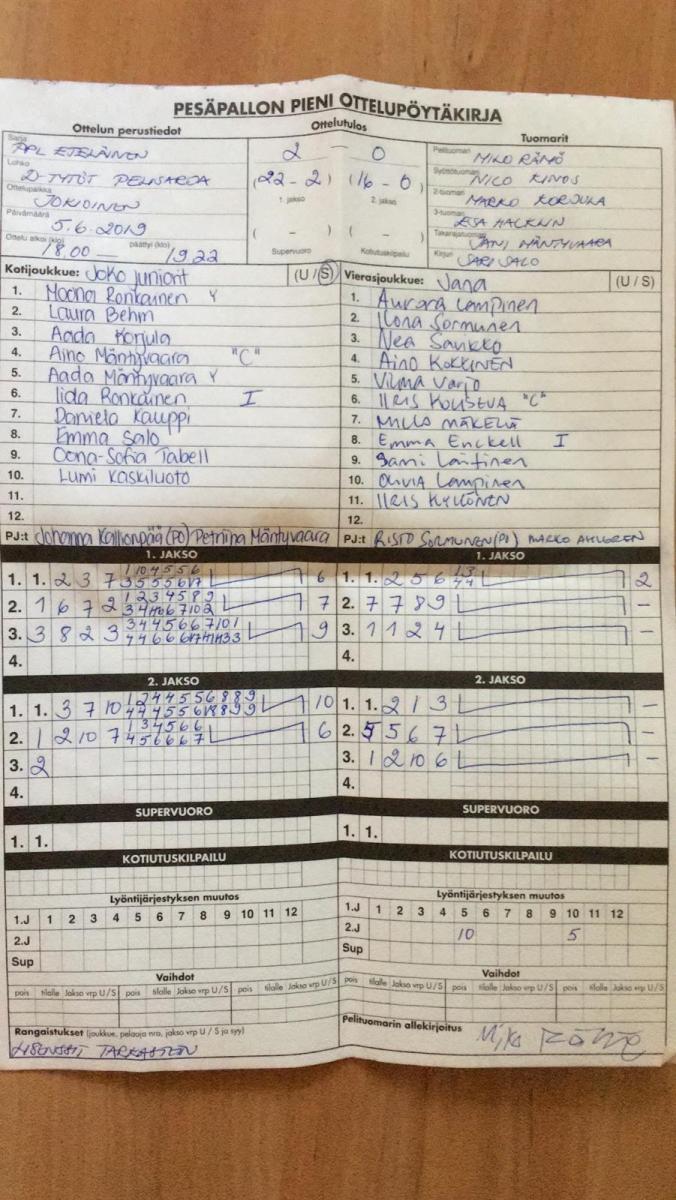 PESÄPALLON PIENI OTTELUPÖYTÄKIRJA
Ottelun perustiedot
Sarja
PPL ETELÄINEN
Lohko
D-TYTÖT PELISARJA
Ottelupaikka
JOKIOINEN
Päivämäärä
5.6.2019
Ottelu alkoi (klo) 18.00 — päättyi (klo) 19.22
Ottelutulos
2 — 0
(22 - 2) (16 - 0)
1. jakso 2. jakso
( - ) ( - )
Supervuoro Kotiutuskilpailu
Tuomarit
Pelituomari MIKO RÄMÖ
Syöttötuomari NICO KINOS
2-tuomari MARKO KORJULA
3-tuomari ESA
Takarajatuomari JANI MÄNTYVAARA
Kirjuri SARI SALO
Kotijoukkue: JoKo juniorit (U / S)
1. Moona Ronkainen Y
2. Laura Behm
3. Aada Korjula
4. Aino Mäntyvaara "C"
5. Aada Mäntyvaara Y
6. Iida Ronkainen I
7. Daniela Kauppi
8. Emma Salo
9. Oona-Sofia Tabell
10. Lumi Kaskiluoto
11.
12.
PJ:t Johanna Kallionpää (PO) Petriina Mäntyvaara
Vierasjoukkue: Jana (U / S)
1. Aurora Lampinen
2. Ilona Sormunen
3. Nea Saukko
4. Aino KOKKINEN
5. Vilma Varjo
6. IIRIS "C"
7. MILLA MÄKELÄ
8. Emma Enckell I
9. Sami Lantinen
10. OLIVIA Lampinen
11. IIRIS KYLLÖNEN
12.
PJ:t RISTO SORMUNEN (PJ) MARKO AHLGREN
1. JAKSO
1. 1. 2 3 7 6
2. 1 6 7 2 7
3. 3 8 2 3 9
4.
1. JAKSO
1. 1. 2 5 6 2
2. 7 7 8 9 -
3. 1 1 2 4 -
4.
2. JAKSO
1. 1. 3 7 10 10
2. 1 2 10 7 6
3. 2
4.
2. JAKSO
1. 1. 2 1 3 -
2. 5 5 6 7 -
3. 1 2 10 6 -
4.
SUPERVUORO
1. 1.
SUPERVUORO
1. 1.
KOTIUTUSKILPAILU
KOTIUTUSKILPAILU
Lyöntijärjestyksen muutos
1.J 1 2 3 4 5 6 7 8 9 10 11 12
2.J
Sup
Lyöntijärjestyksen muutos
1.J 1 2 3 4 5 6 7 8 9 10 11 12
2.J 10 5
Sup
Vaihdot
pois tilalle Jakso vrp U / S pois tilalle Jakso vrp U / S
Vaihdot
pois tilalle Jakso vrp U / S pois tilalle Jakso vrp U / S
Rangaistukset (joukkue, pelaaja nro, jakso vrp U / S ja syy)
Pelituomarin allekirjoitus
Miko Rämö